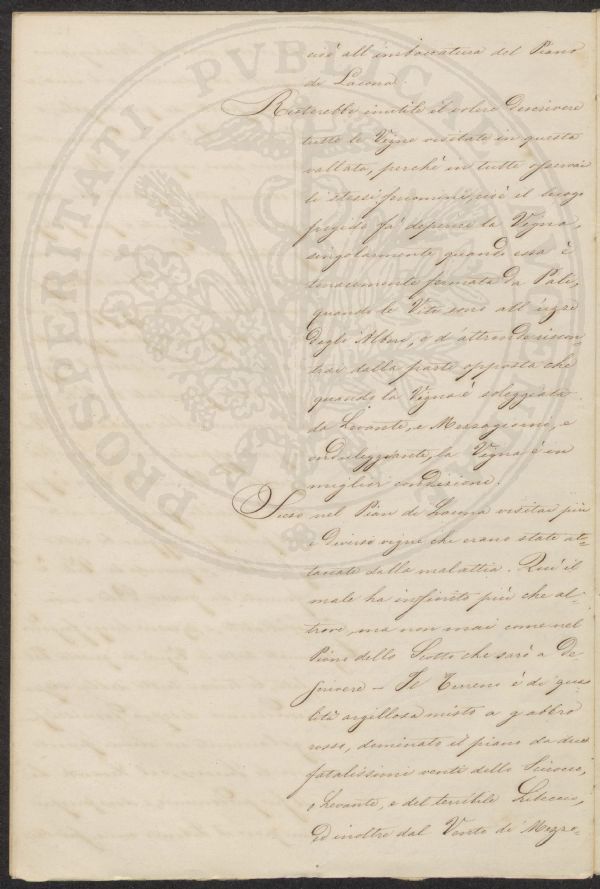 cioè all'imboccatura del Piano
di Lacona.
Resterebbe inutile il volere descrivere
tutte le Vigne visitate in questa
vallata, perchè in tutte osservai
li stessi fenomeni, cioè il luogo
frigido fà deperire la Vigna,
singolarmente quando essa è
tenacemente fermata da Pali,
quando le Vite sono all'
degli Alberi, e d'altronde riscon
trai dalla parte opposta che
quando la Vigna è soleggiata
da Levante, e Mezzogiorno, e
ondeleggiante, la Vigna è in
miglior condizione.
Sceso nel Pian di Lacona visitai più
e diverse vigne che erano state at-
taccate dalla malattia. Quì il
male ha infinito più che al-
trove, ma non mai come nel
Piano dello Stotto che sarò a de-
scrivere – Il Terreno è di qua
lità argillosa misto a gabbro
rosso, dominato il piano da due
fatalissimi venti dello Scirocco,
e Levante, e del terribile Libeccio,
ed inoltre dal Vento di Mezzo-
PROSPERITATI PVBLICAE